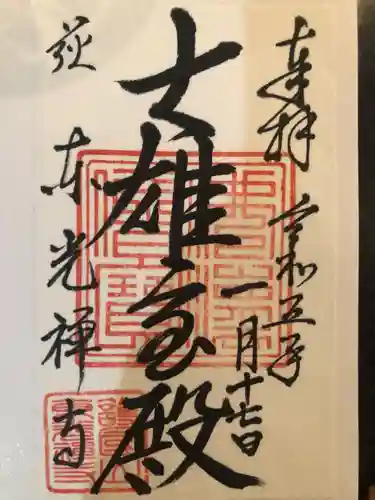 奉拝
令和五年
一月十七日
大雄宝殿
萩
東光禅寺